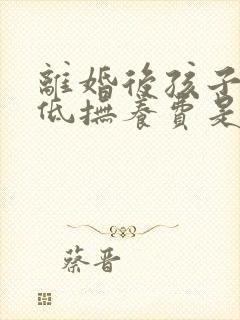 離婚後孩子
低撫養費是
蔡晋